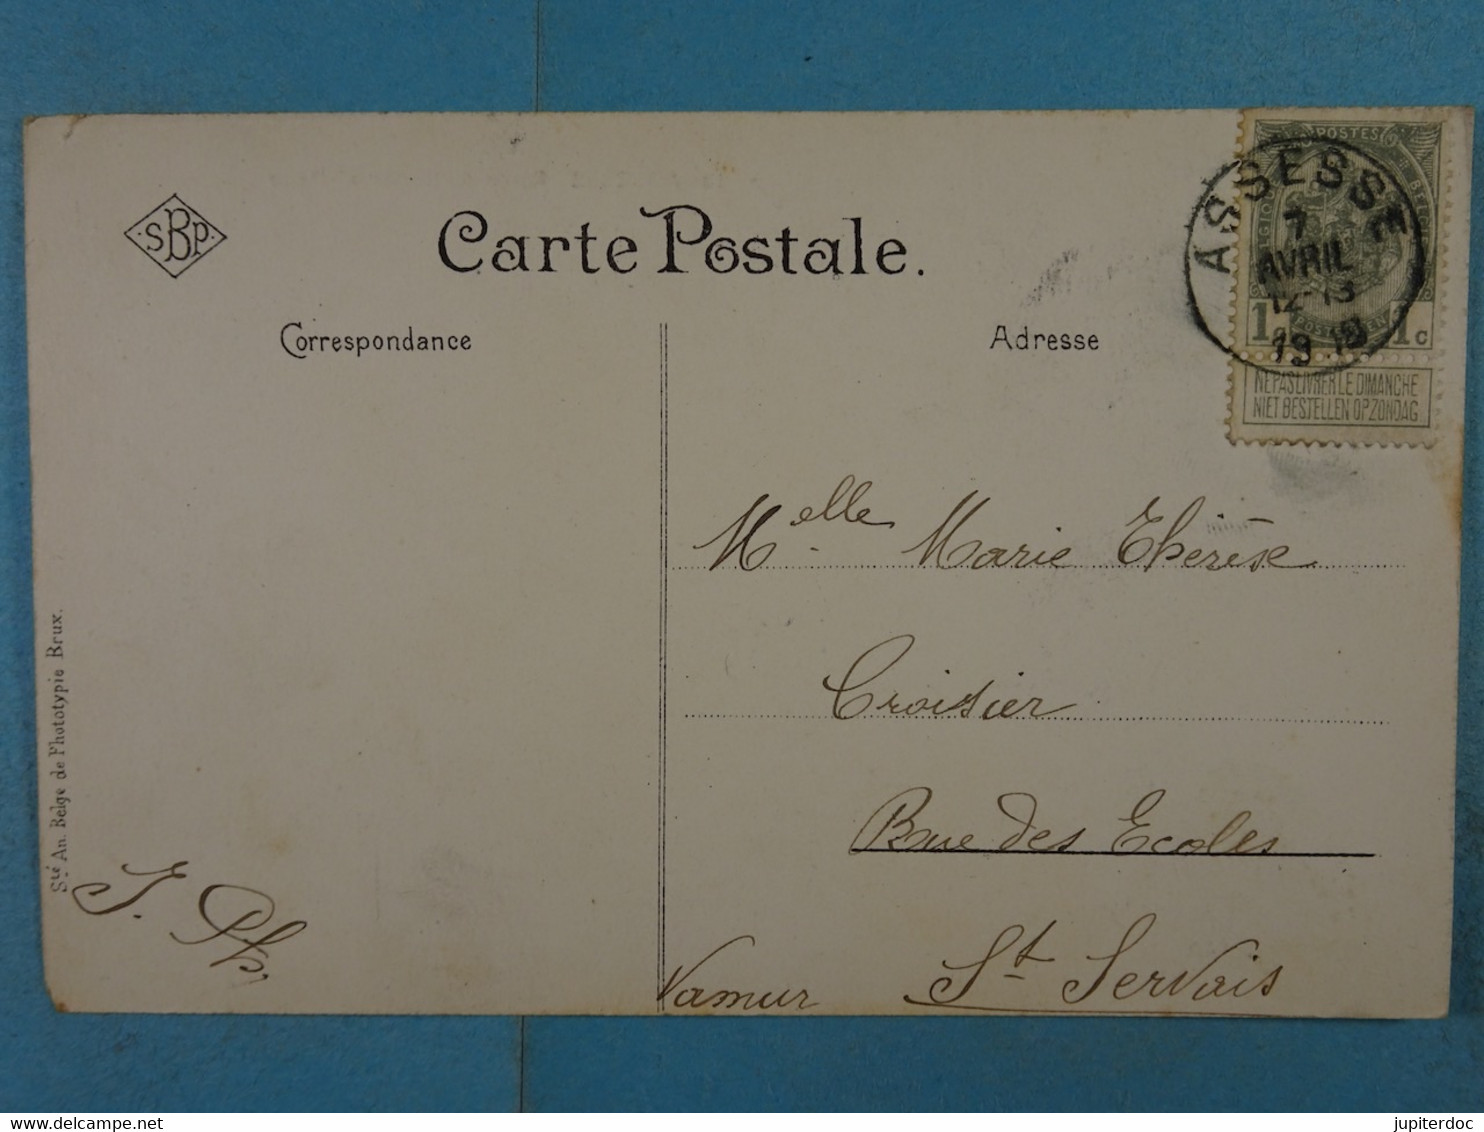 SBP
Carte Postale.
Correspondance
Adresse
POSTES
ASSESSE
7
AVRIL
12-13
19 10
1c 1c
NE PAS LIVRER LE DIMANCHE
NIET BESTELLEN OP ZONDAG
Melle Marie Thérèse
Croisier
Rue des Ecoles
St Servais
Namur
J. Ph
Sté An. Belge de Phototypie Brux.
delcampe.net
jupiterdoc